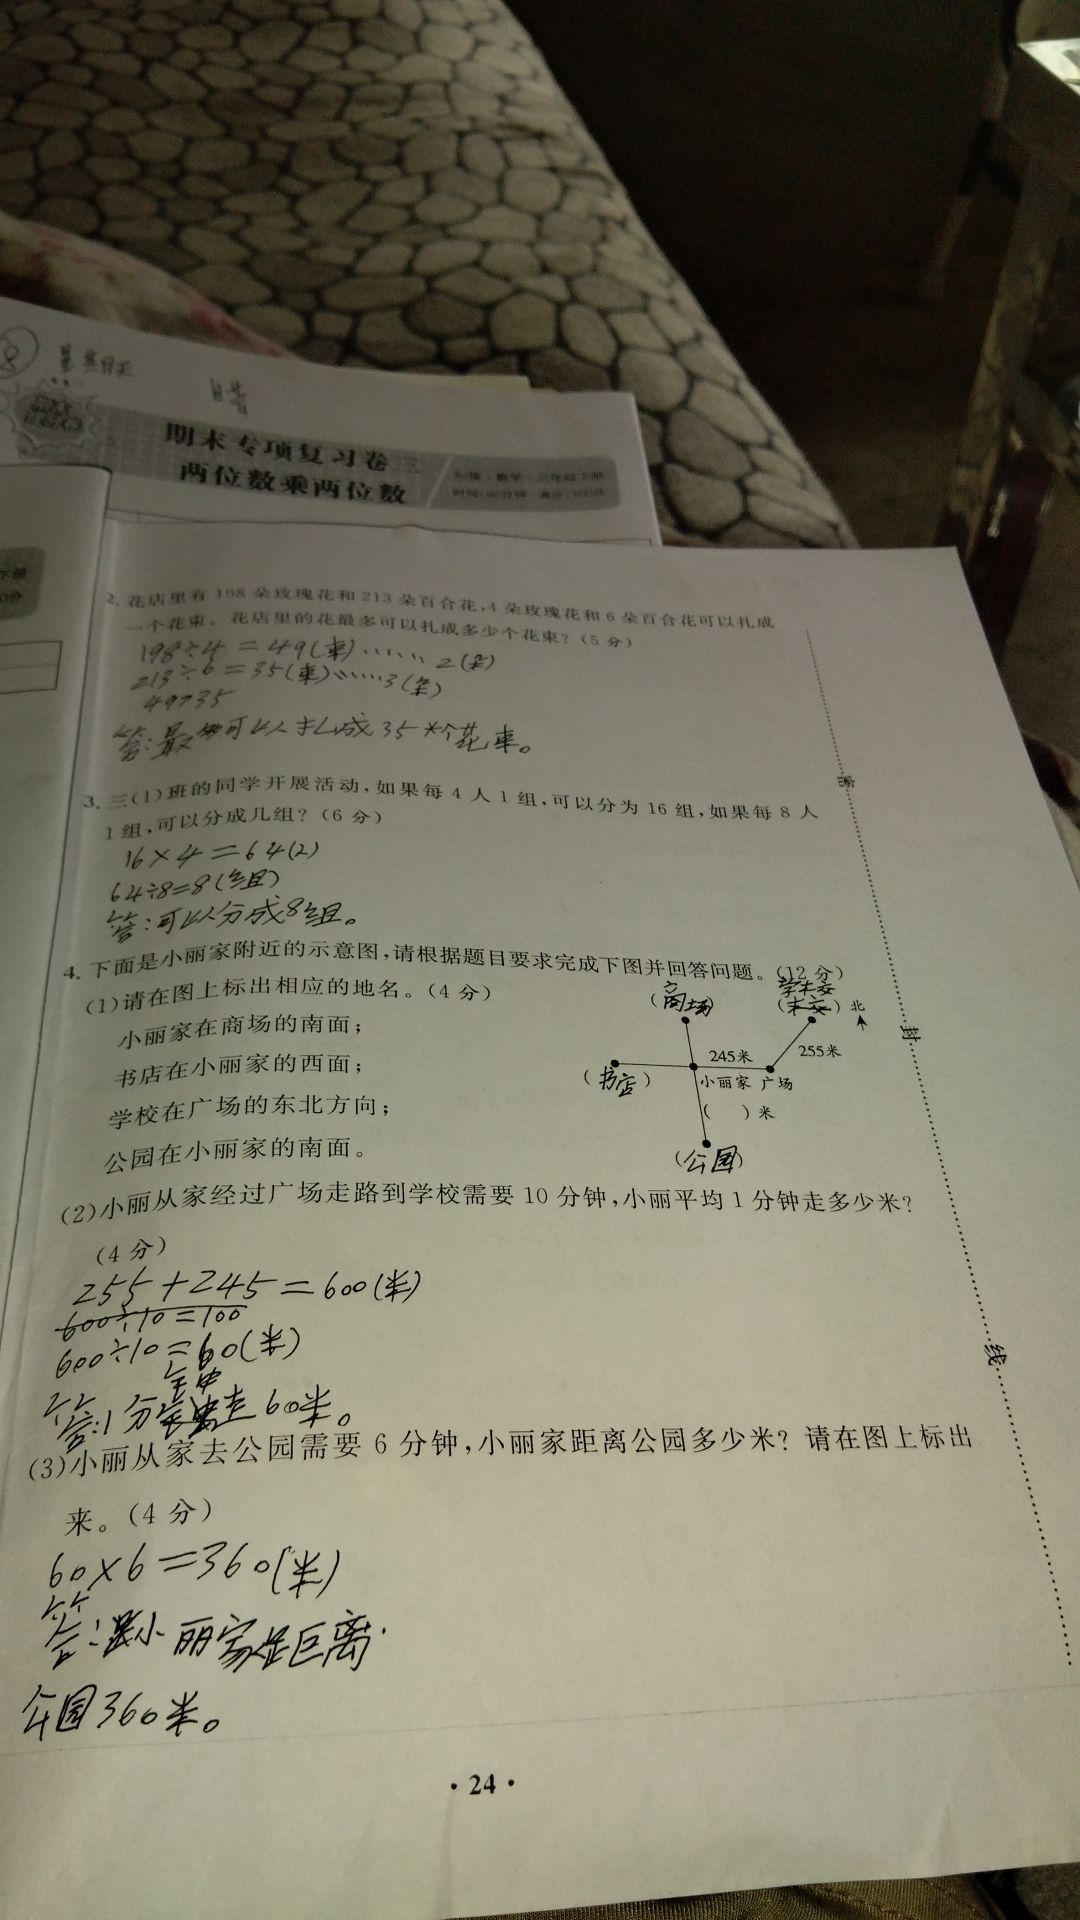 8
期末专项复习卷三
两位数乘两位数
2. 花店里有 198 朵玫瑰花和 213 朵百合花,4 朵玫瑰花和 6 朵百合花可以扎成
一个花束。花店里的花最多可以扎成多少个花束?(5 分)
198÷4=49(束)……2(朵)
213÷6=35(束)……3(朵)
49>35
答:最多可以扎成35个花束。
密
3. 三(1)班的同学开展活动,如果每 4 人 1 组,可以分为 16 组,如果每 8 人
1 组,可以分成几组?(6 分)
16×4=64(人)
64÷8=8(组)
答:可以分成8组。
4. 下面是小丽家附近的示意图,请根据题目要求完成下图并回答问题。(12 分)
(1)请在图上标出相应的地名。(4 分)
小丽家在商场的南面;
书店在小丽家的西面;
学校在广场的东北方向;
公园在小丽家的南面。
(商场)
学校
北
245米
255米
(书店)
小丽家 广场
( )米
(公园)
封
(2)小丽从家经过广场走路到学校需要 10 分钟,小丽平均 1 分钟走多少米?
(4 分)
255+245=600(米)
600÷10=100
600÷10=60(米)
答:1分钟走60米。
线
(3)小丽从家去公园需要 6 分钟,小丽家距离公园多少米? 请在图上标出
来。(4 分)
60×6=360(米)
答:小丽家距离
公园360米。
·24·